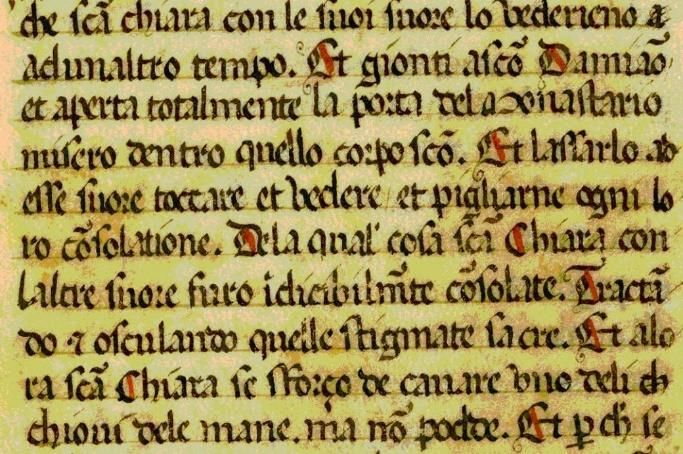 che scā chiara con le suoi suore lo vederieno a
adunaltro tempo. Et gionti ascō Damiāo
et aperta totalmente la porta del monastario
misero dentro quello corpo scō. Et lassarlo ad
esse suore toccare et vedere et pigliarne ogni lo
ro cōsolatione. Dela qual cosa scā Chiara con
laltre suore furo īdicibilmēte cōsolate. Tractā
do ⁊ osculando quelle stigmate sacre. Et alo
ra scā Chiara se sforço de cauare vno deli ch
chioui dele mane. ma nō podde. Et ꝑ ch se